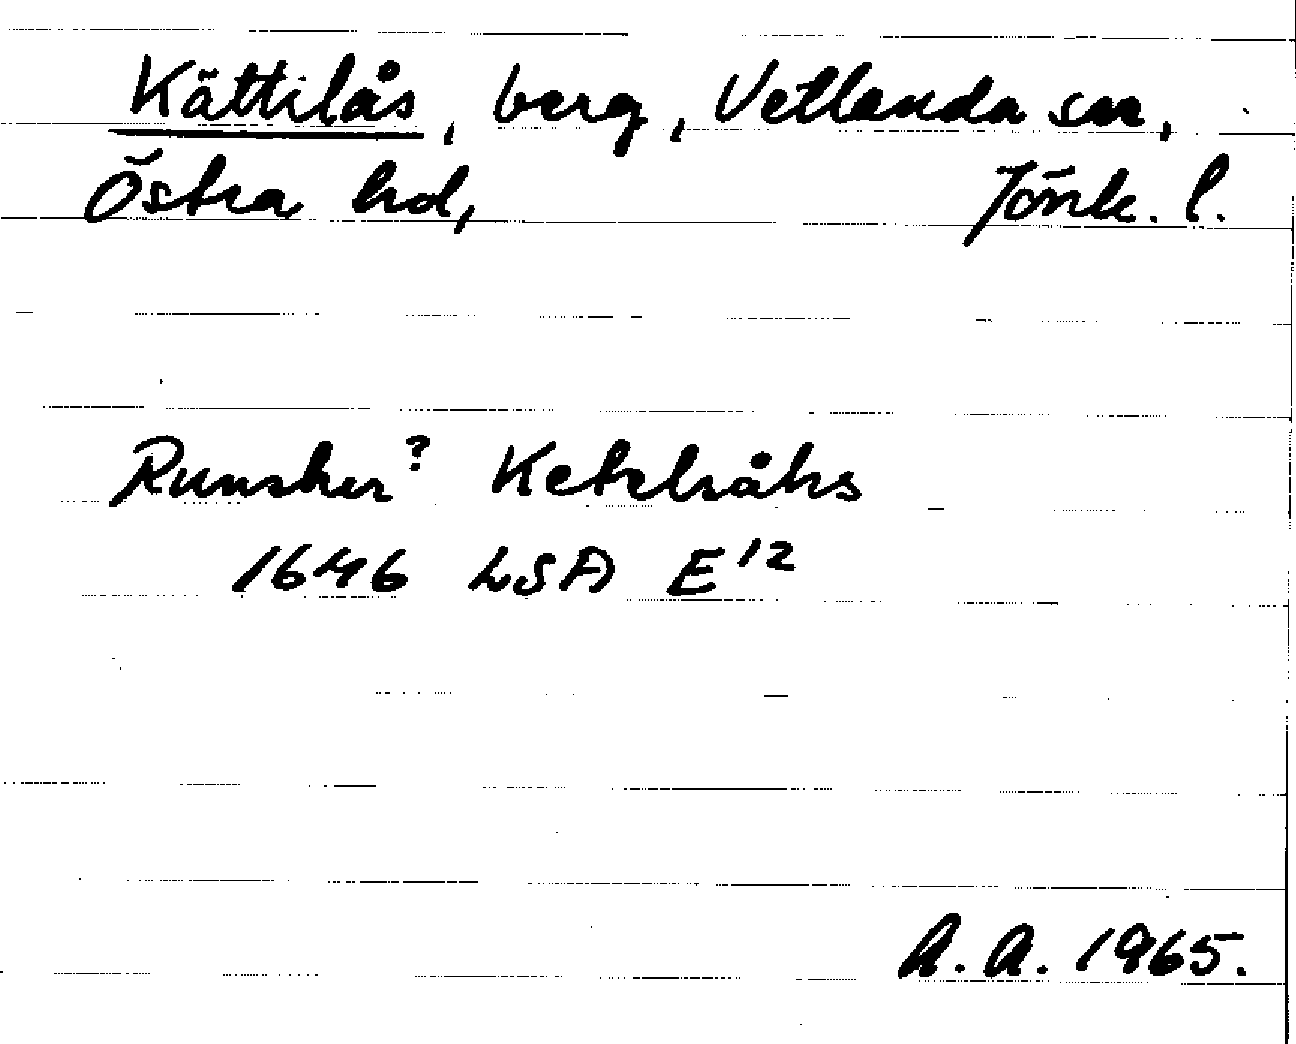 Kättilås, berg, Vetlanda sn,
Östra hd, Jönk. l.
Runsker? Ketelsåhs
1646 LSA E12
A. A. 1965.